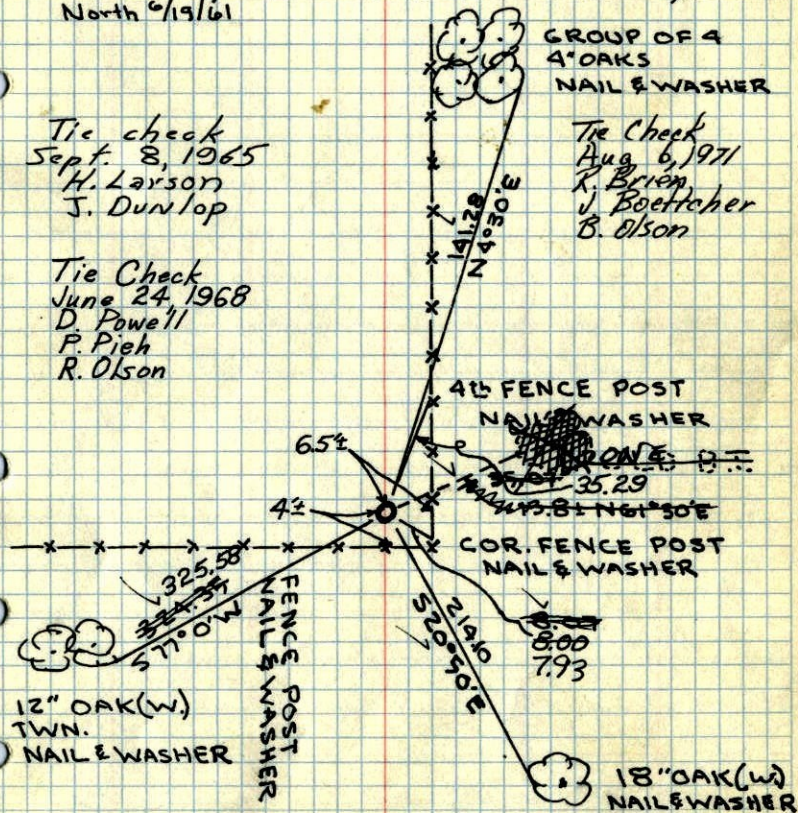 North 6/19/61
GROUP OF 4
4" OAKS
NAIL & WASHER
Tie check
Sept. 8, 1965
H. Larson
J. Dunlop
Tie Check
Aug 6, 1971
R. Brien
J Boettcher
B. Olson
Tie Check
June 24, 1968
D. Powell
P. Pieh
R. Olson
141.28
N 4°30'E
4th FENCE POST
NAIL & WASHER
6.5'±
35.29
N61°50'E
4'±
COR. FENCE POST
NAIL & WASHER
325.58
324.35
S 77°0'W
FENCE POST
NAIL & WASHER
214.10
S20°50'E
8.00
8.00
7.93
12" OAK (W.)
TWN.
NAIL & WASHER
18" OAK (W.)
NAIL & WASHER